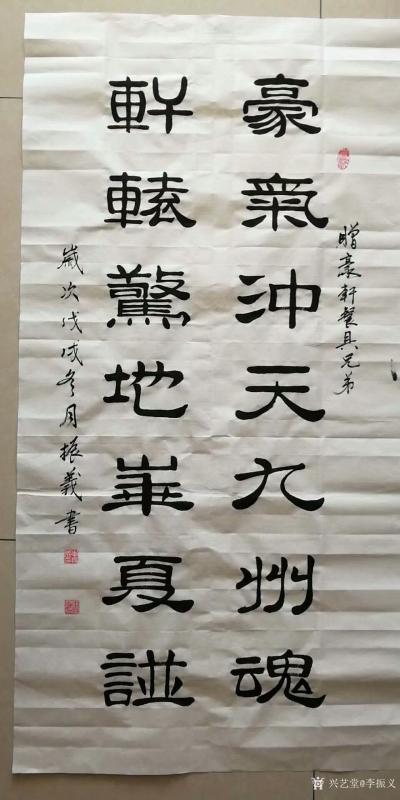 贈豪軒餐具兄弟
豪氣冲天九州魂
軒轅驚地華夏
歲次戊戌冬月振義書
兴艺堂@李振义